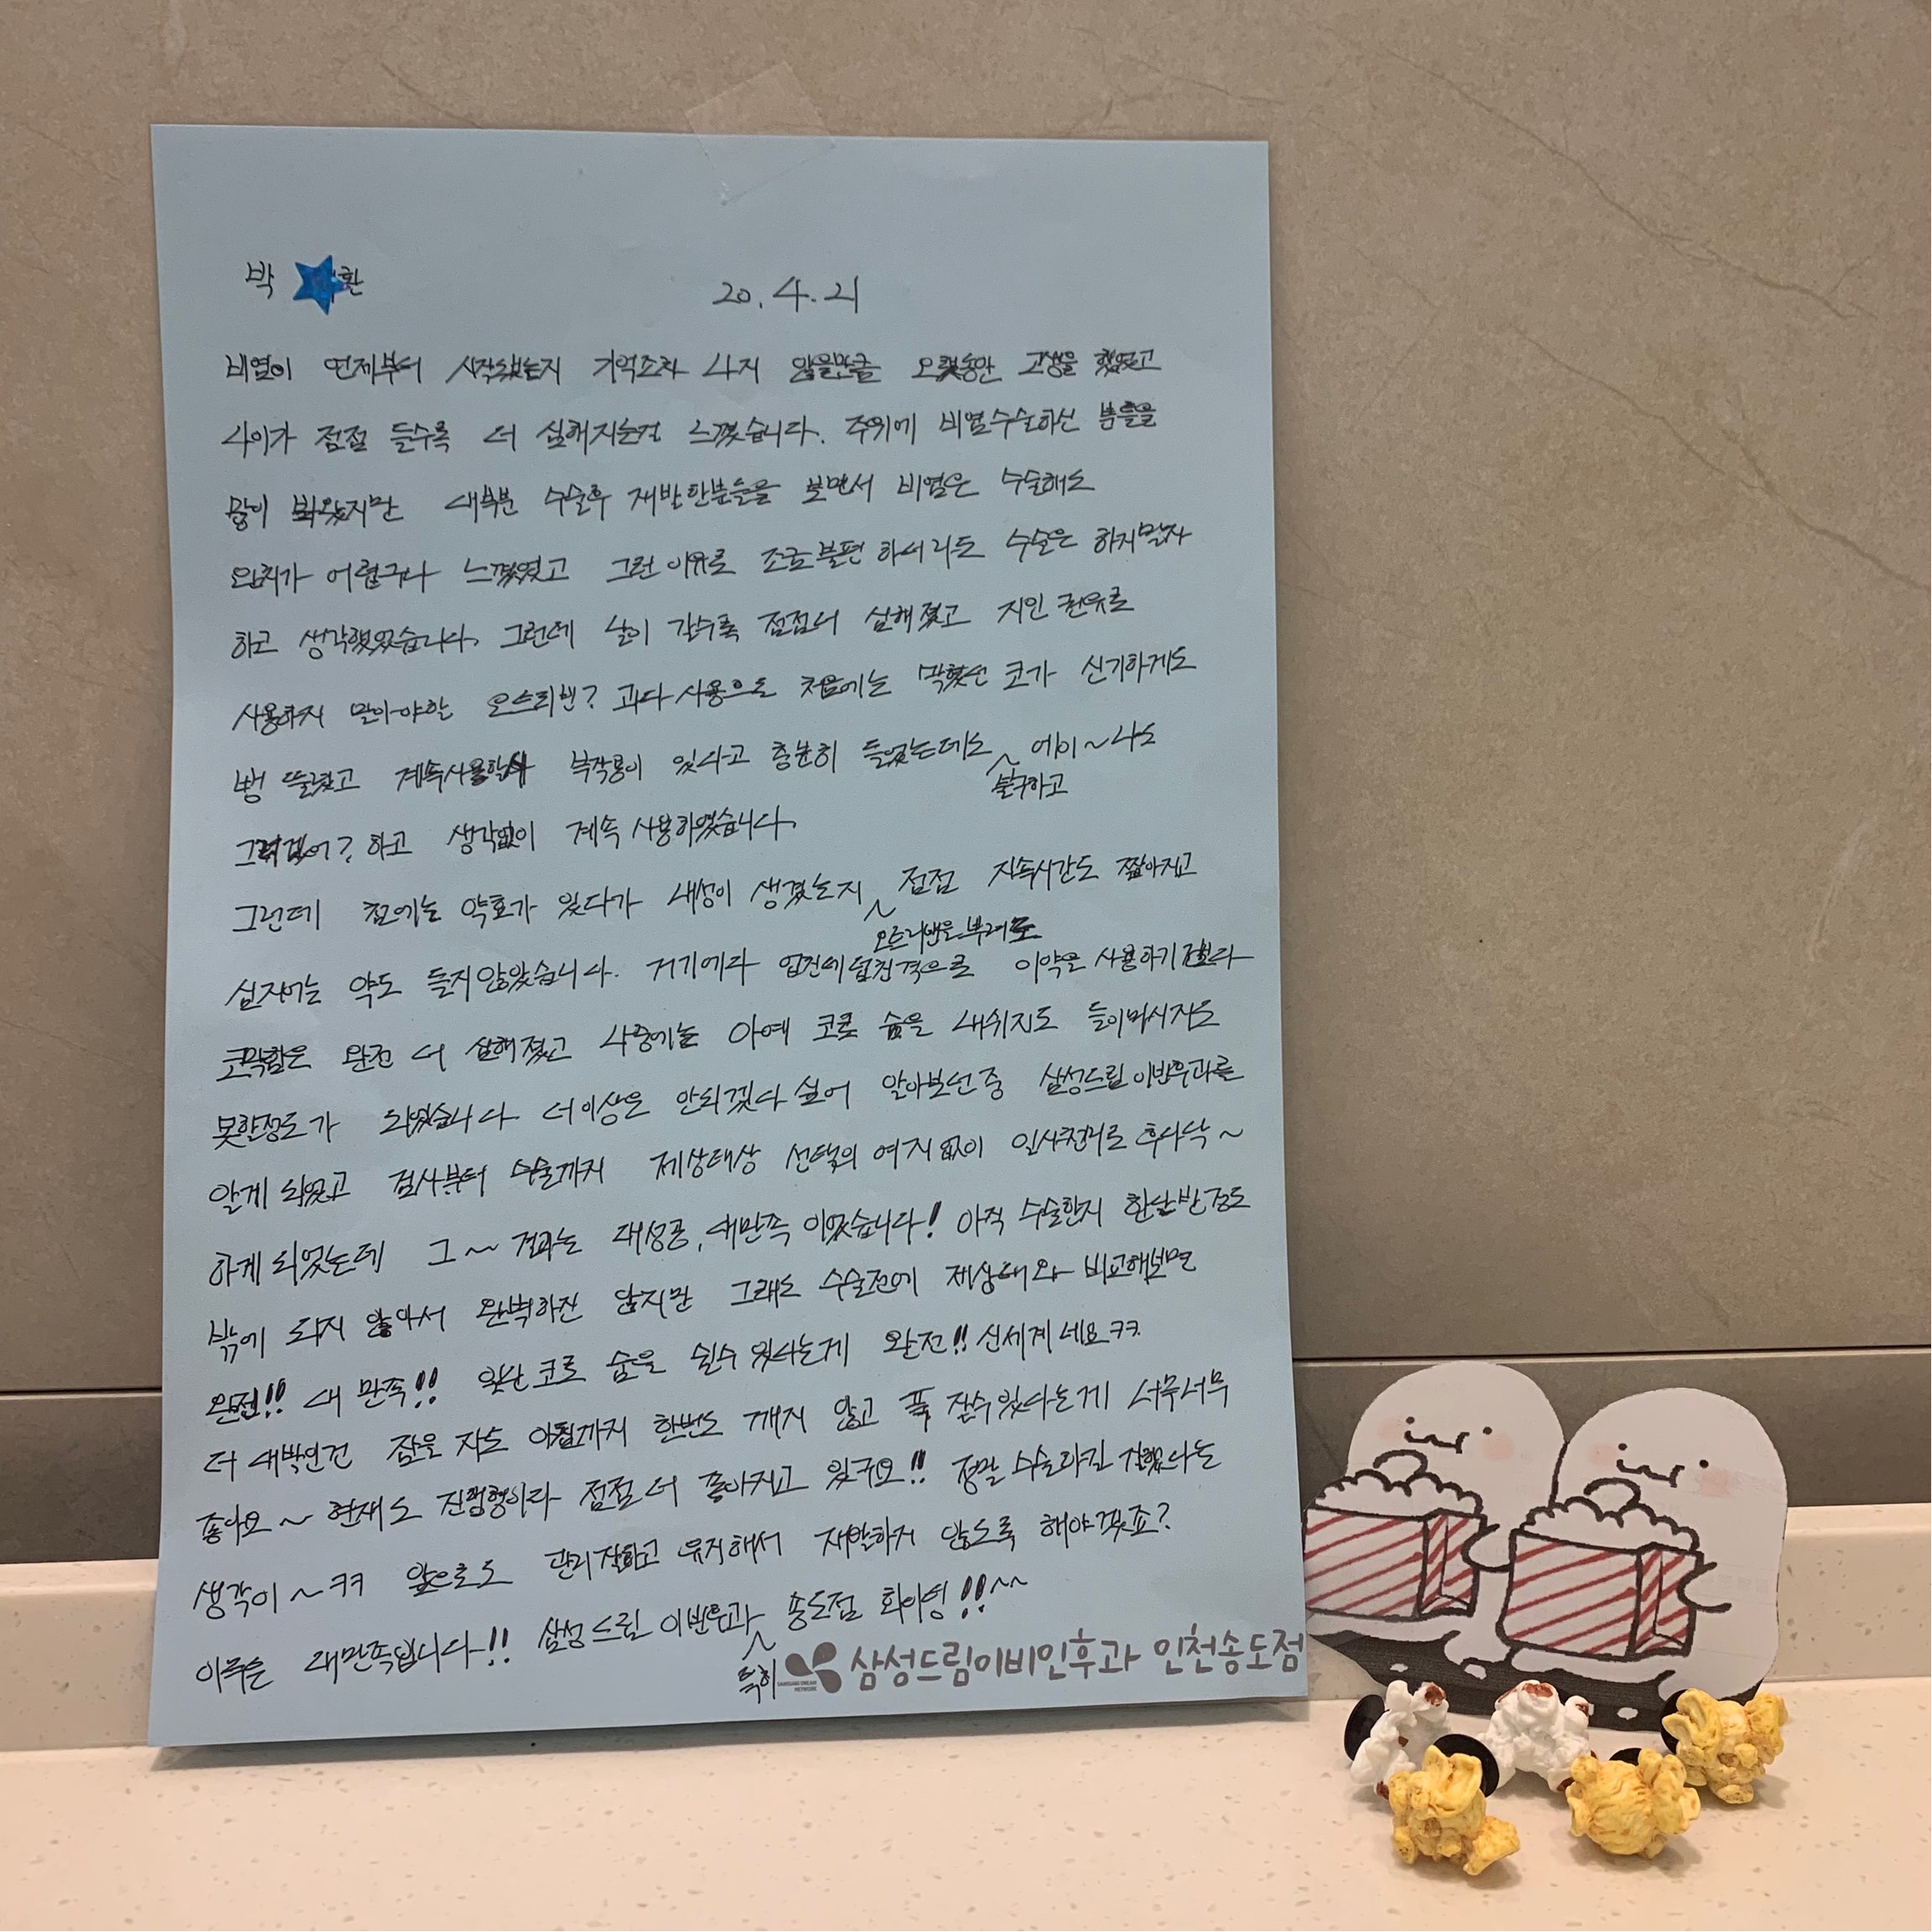 박 환
20.4.21
비염이 언제부터 시작됐는지 기억조차 나지 않을만큼 오랫동안 고생을 했었고
나이가 점점 들수록 더 심해지는걸 느꼈습니다. 주위에 비염수술하신 분들을
많이 봐왔지만 대부분 수술후 재발한분들을 보면서 비염은 수술해도
완치가 어렵구나 느꼈었고 그런 이유로 조금 불편 하더라도 수술은 하지말자
하고 생각했었습니다. 그런데 날이 갈수록 점점더 심해졌고 지인 권유로
사용하지 말아야할 오트리빈? 과다 사용으로 처음에는 막혔던 코가 신기하게도
뻥 뚫렸고 계속사용할시 부작용이 있다고 충분히 들었는데도 에이~ 나도
불구하고
그러겠어? 하고 생각없이 계속 사용하였습니다.
그런데 첨에는 약효가 있다가 내성이 생겼는지 점점 지속시간도 짧아지고
오트리빈을 뿌려도
심지어는 약도 듣지않았습니다. 거기에다 업친데덥친격으로 이약을 사용하기전보다
코막힘은 완전 더 심해졌고 나중에는 아예 코로 숨을 내쉬지도 들이마시지도
못할정도가 되었습니다. 더이상은 안되겠다 싶어 알아보던중 삼성드림이비인후과를
알게 되었고 검사부터 수술까지 제상태상 선택의 여지없이 일사천리로 후다닥~
하게 되었는데 그~~ 결과는 대성공, 대만족 이었습니다! 아직 수술한지 한달반정도
밖에 되지 않아서 완벽하진 않지만 그래도 수술전에 제상태와 비교해보면
완전!! 대 만족!! 일단 코로 숨을 쉴수 있다는게 완전!! 신세계네요ㅋㅋ
더 대박인건 잠을 자도 아침까지 한번도 깨지 않고 푹 잘수있다는게 너무너무
좋아요~ 현재도 진행형이라 점점 더 좋아지고 있구요!! 정말 수술하길 잘했다는
생각이~ㅋㅋ 앞으로도 관리잘하고 유지해서 재발하지 않도록 해야겠죠?
이루는 대만족입니다!! 삼성드림 이비인후과 송도점 화이팅!!~~
특히
SAMSUNG DREAM NETWORK 삼성드림이비인후과 인천송도점